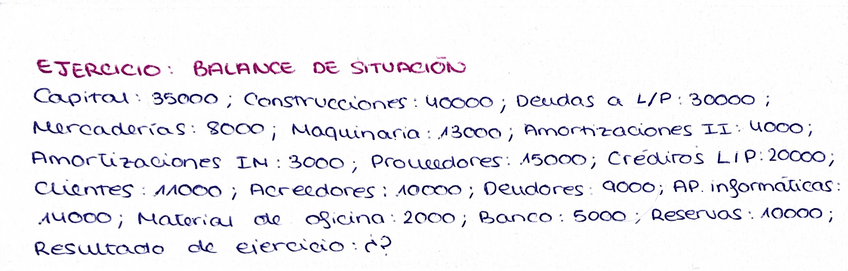 EJERCICIO: BALANCE DE SITUACIÓN
Capital: 35000; Construcciones: 40000; Deudas a L/P: 30000;
Mercaderías: 8000; Maquinaria: 13000; Amortizaciones II: 4000;
Amortizaciones IM: 3000; Proveedores: 15000; Créditos L/P: 20000;
Clientes: 11000; Acreedores: 10000; Deudores: 9000; AP. informáticas:
14000; Material de oficina: 2000; Banco: 5000; Reservas: 10000;
Resultado de ejercicio: ¿?